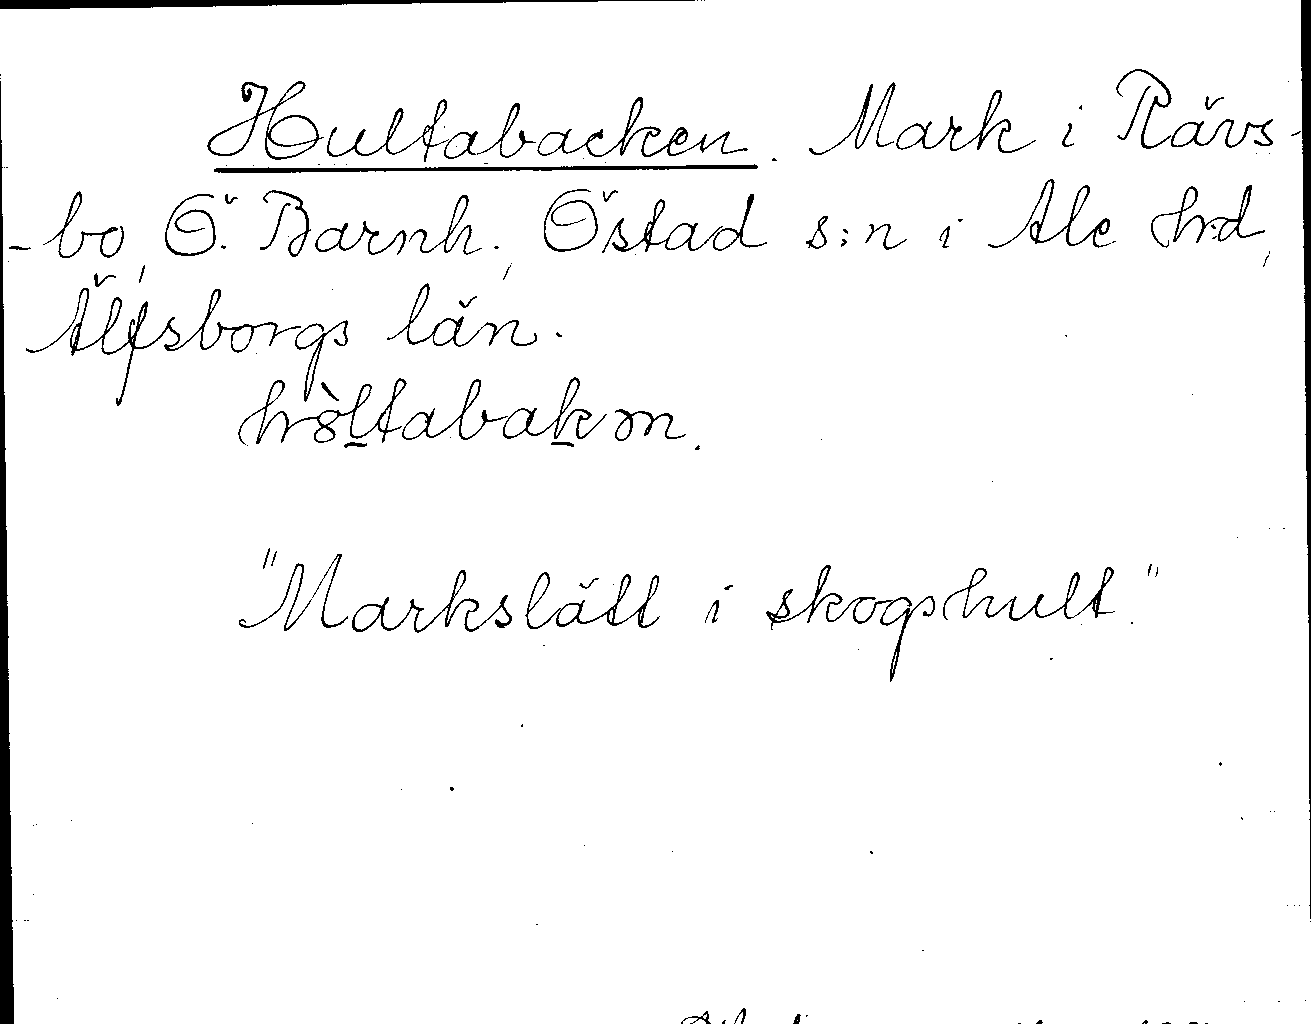 Hultabacken. Mark i Rävs-
-bo, Ö. Barnh., Östad s:n i Ale hrd,
Älfsborgs län.
hòltabakən.
"Markslätt i skogshult."